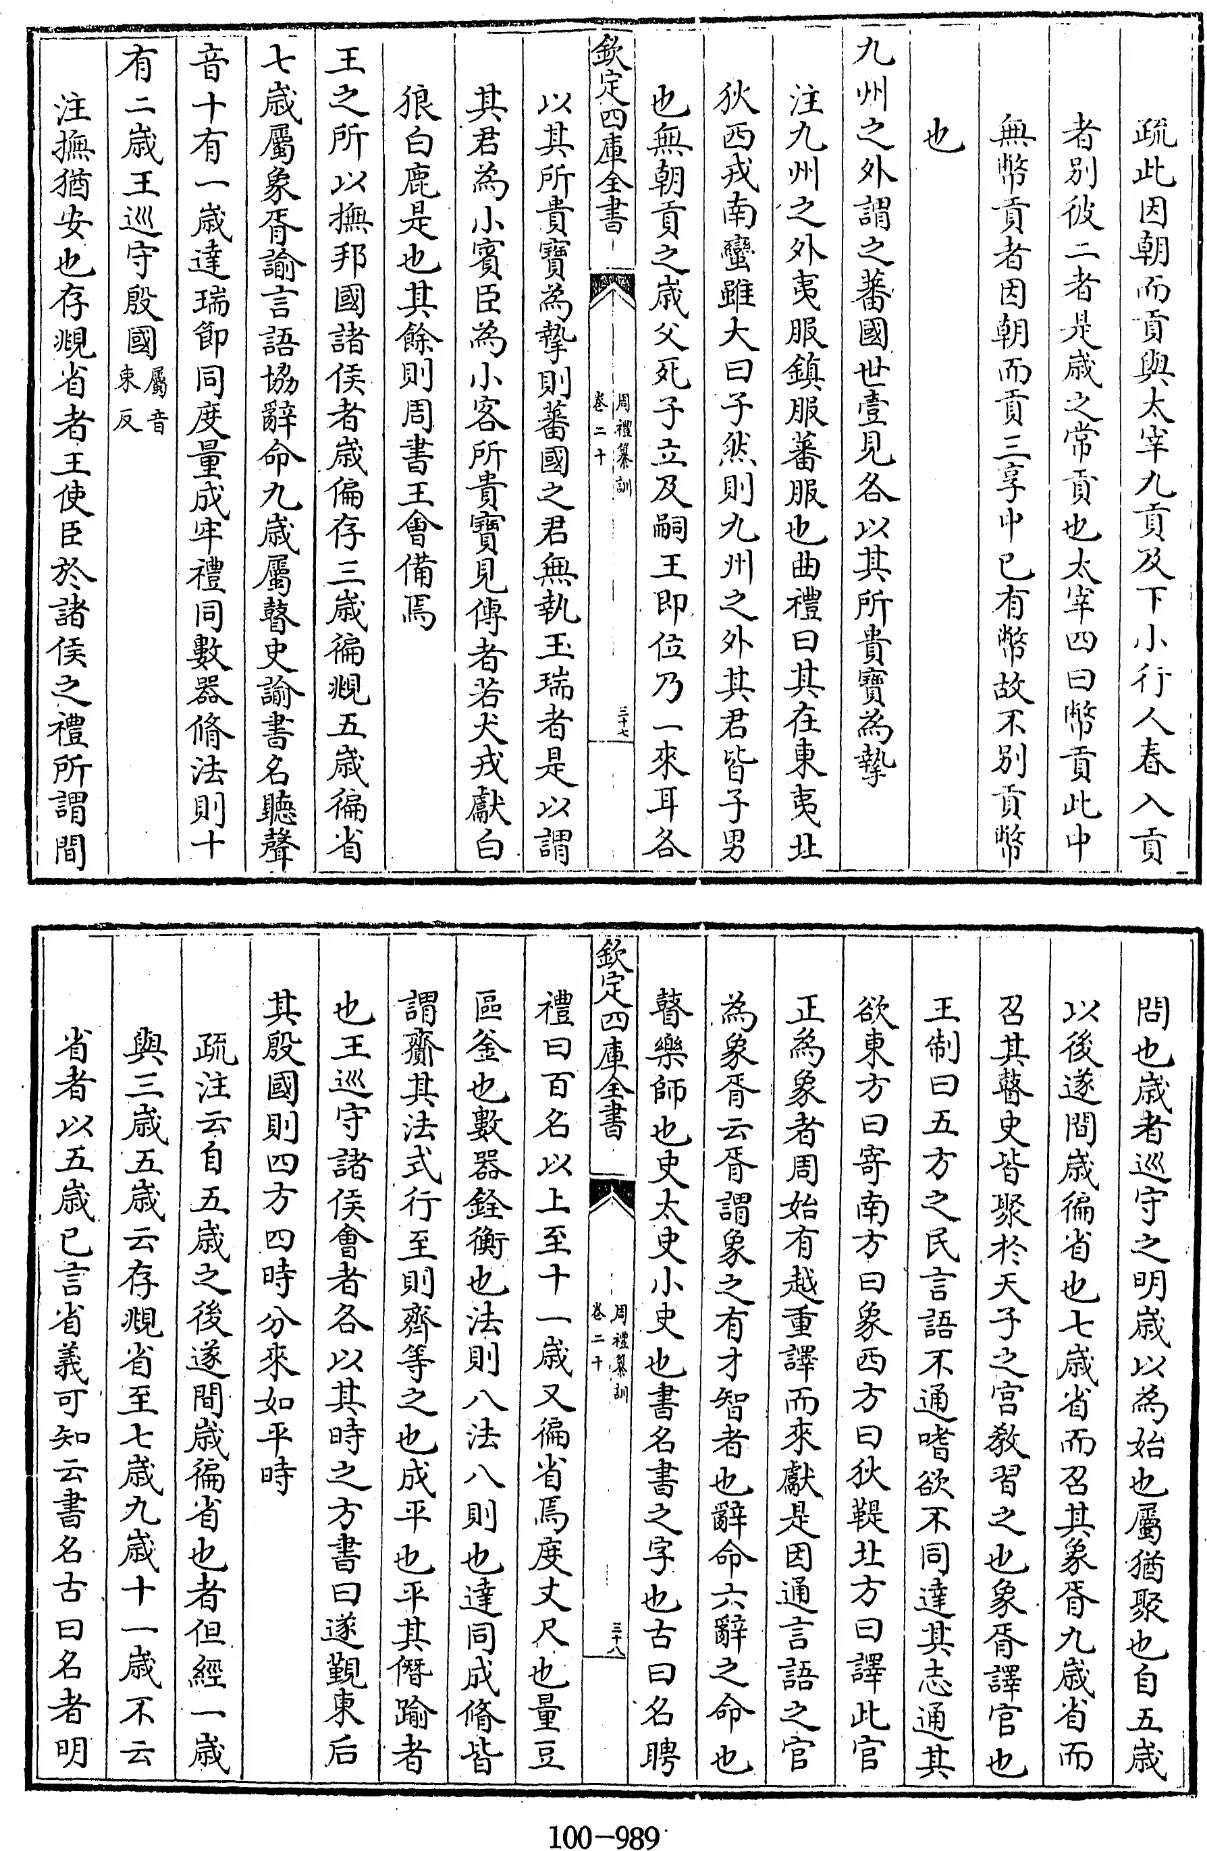 疏此因朝而貢與太宰九貢及下小行人春入貢
者别彼二者是歳之常貢也太宰四曰幣貢此中
無幣貢者因朝而貢三享中已有幣故不别貢幣
也
九州之外謂之蕃國世壹見各以其所貴寶為摯
注九州之外夷服鎮服蕃服也曲禮曰其在東夷北
狄西戎南蠻雖大曰子然則九州之外其君皆子男
也無朝貢之歳父死子立及嗣王即位乃一來耳各
欽定四庫全書
周禮纂訓
卷二十
三十七
以其所貴寶為摯則蕃國之君無執玉瑞者是以謂
其君為小賓臣為小客所貴寶見傳者若犬戎獻白
狼白鹿是也其餘則周書王會備焉
王之所以撫邦國諸侯者歳徧存三歳徧覜五歳徧省
七歳屬象胥諭言語協辭命九歳屬瞽史諭書名聽聲
音十有一歳達瑞節同度量成牢禮同數器脩法則十
有二歳王巡守殷國屬音
束反
注撫猶安也存覜省者王使臣於諸侯之禮所謂間
問也歳者巡守之明歳以為始也屬猶聚也自五歳
以後遂間歳徧省也七歳省而召其象胥九歳省而
召其瞽史皆聚於天子之宫教習之也象胥譯官也
王制曰五方之民言語不通嗜欲不同達其志通其
欲東方曰寄南方曰象西方曰狄鞮北方曰譯此官
正為象者周始有越重譯而來獻是因通言語之官
為象胥云胥謂象之有才智者也辭命六辭之命也
瞽樂師也史太史小史也書名書之字也古曰名聘
欽定四庫全書
周禮纂訓
卷二十
三十八
禮曰百名以上至十一歳又徧省焉度丈尺也量豆
區釜也數器銓衡也法則八法八則也達同成脩皆
謂齎其法式行至則齊等之也成平也平其僭踰者
也王巡守諸侯會者各以其時之方書曰遂覲東后
其殷國則四方四時分來如平時
疏注云自五歳之後遂間歳徧省也者但經一歳
與三歳五歳云存覜省至七歳九歳十一歳不云
省者以五歳已言省義可知云書名古曰名者明
100-989